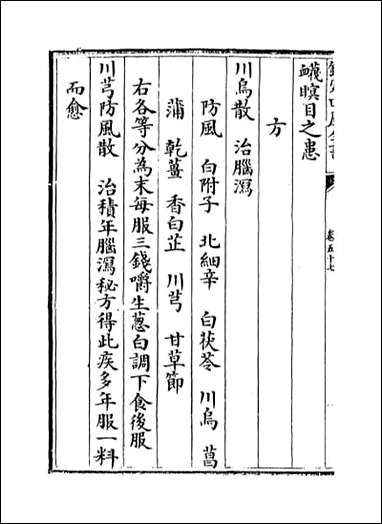 欽定四庫全書
卷五十七
衊瞑目之患
方
川烏散 治腦瀉
防風 白附子 北細辛 白茯苓 川烏 菖
蒲 乾薑 香白芷 川芎 甘草節
右各等分為末每服三錢嚼生蔥白調下食後服
川芎防風散 治積年腦瀉秘方得此疾多年服一料
而愈